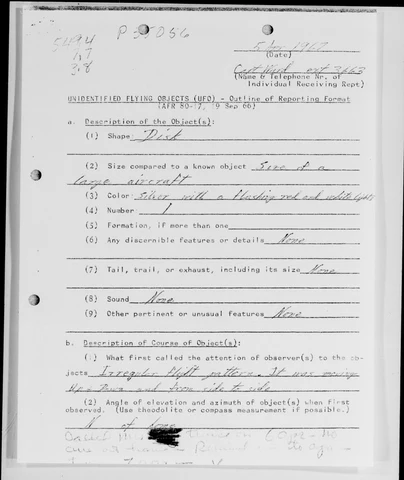 P 35056
5 Apr 1967
(Date)
Capt Ward ext 3663
(Name & Telephone Nr. of
Individual Receiving Rept)
UNIDENTIFIED FLYING OBJECTS (UFO) - Outline of Reporting Format
(AFR 80-17, 19 Sep 66)
a. Description of the Object(s):
(1) Shape: Disk
(2) Size compared to a known object Size of a
large aircraft
(3) Color: Silver with a flashing red and white lights
(4) Number 1
(5) Formation, if more than one
(6) Any discernible features or details None
(7) Tail, trail, or exhaust, including its size None
(8) Sound None
(9) Other pertinent or unusual features None
b. Description of Course of Object(s):
(1) What first called the attention of observer(s) to the ob-
jects Irregular flight pattern. It was moving
up & down and from side to side
(2) Angle of elevation and azimuth of object(s) when first
observed. (Use theodolite or compass measurement if possible.)
N of